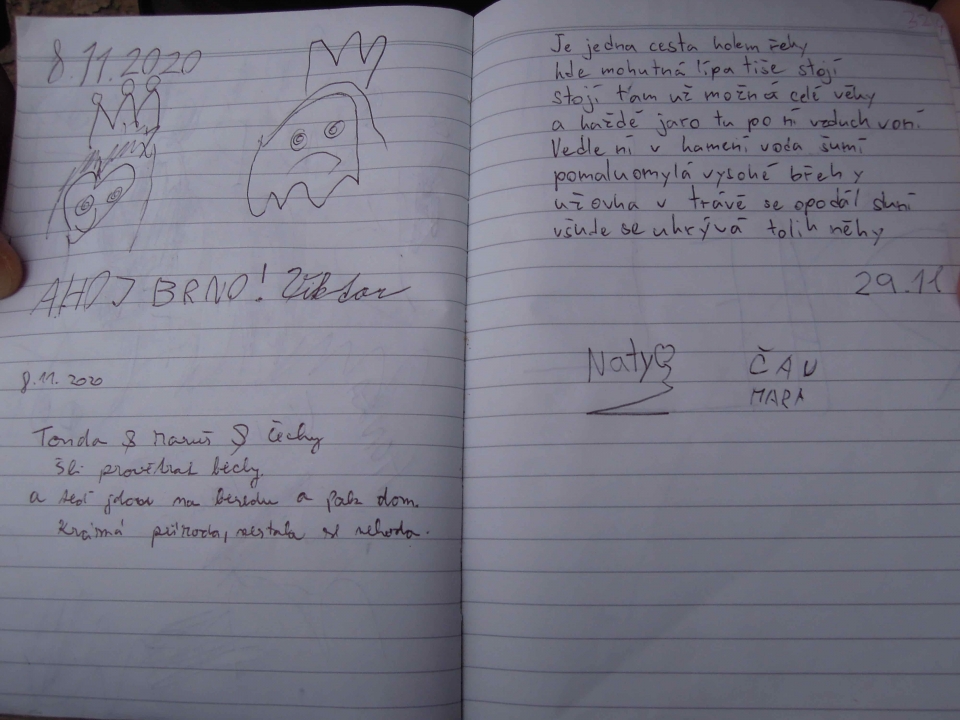 8.11.2020
AHOJ BRNO! Viktor
8.11.2020
Tonda & Maruš & Čechy
Šli provětrat běchy.
a teď jdou na besedu a pak dom.
Krásná příroda, nestala se nehoda.
Je jedna cesta kolem řeky
kde mohutná lípa tiše stojí
stojí tam už možná celé věky
a každé jaro tu po ní vzduch voní
Vedle ní v kamení voda šumí
pomalu omylá vysoké břehy
užovka v trávě se opodál sluní
všude se ukrývá tolik něhy
29.11
Naty
ČAU
MARA